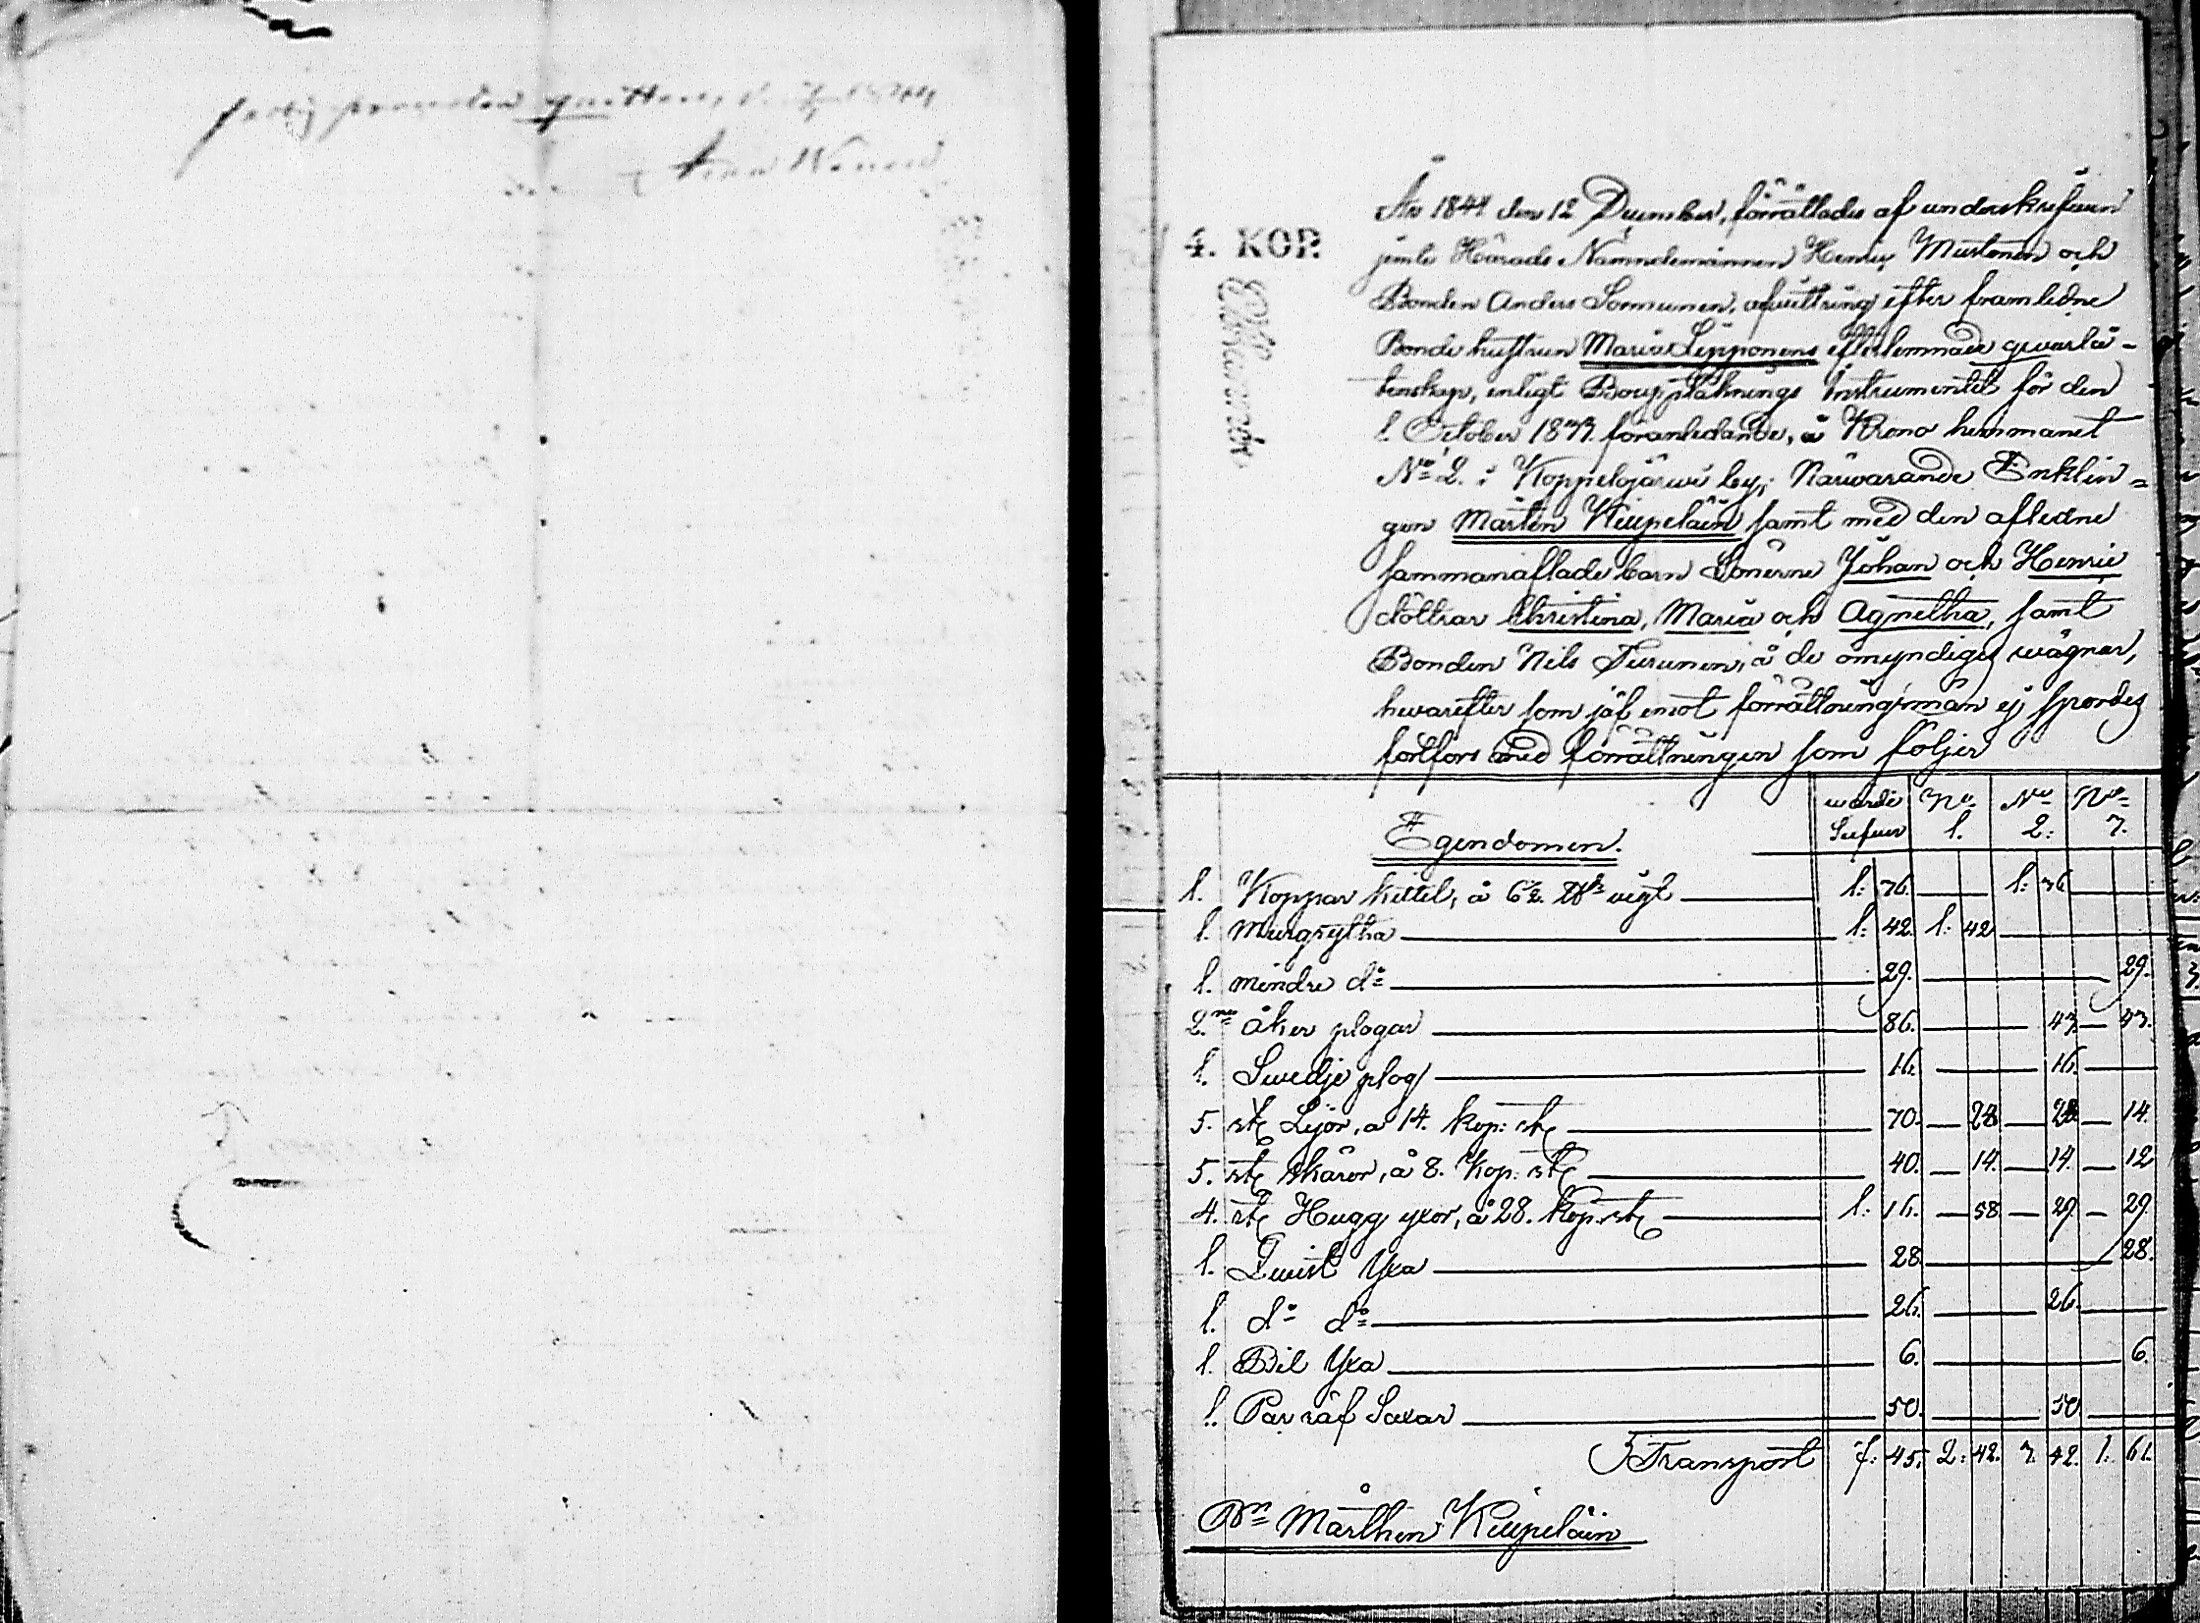 År 1844 den 12 December, förrättades af underskrefven
jemte Härads Nämndemannen Henric Mustonen och
Bonden Anders Sormunen, afvittring efter framledne
Bonde hustrun Maria Lipponens efterlemnade qvarlå-
tenskap, enligt Boupptäknings Instrumentet för den
1. October 1833. föranledande, å Krono hemmanet
No 2. i Koppelojärwi by; Närwarande Enklin=
gen Mårten Kiupeläin samt med den afledne
sammanaflade barn Sönerne Johan och Henric
döttrar Christina, Maria och Agnetha, samt
Bonden Nils Turunen, å de omyndiges wägnar,
hwarefter som jäf emot förrättningsmän ej spordes
fortfors med förrättningen som följer
4. KOP.
Egendomen. wärde Silfver No 1. No 2: No 3.
1. Koppar kittel, å 6½ ℔ vigt 1: 36. 1: 36
1. Murgrytha 1: 42. 1: 42
1. mindre do 29. 29.
2.ne åker plogar 86. 43. 43.
1. Swedje plog 16. 16.
5. st Lijor, a 14. kop: st 70. 28 28 14.
5. st skäror, å 8. Kop. st 40. 14. 14. 12
4. st Hugg yxor, å 28. kop. st 1: 16. 58 29. 29.
1. Twist Yxa 28. 28.
1. do do 26. 26.
1. Bil Yxa 6. 6.
1. Par räf Saxar 50. 50
Transport 7: 45. 2: 42. 3. 42. 1: 61.
Bn Mårthen Kiupeläin